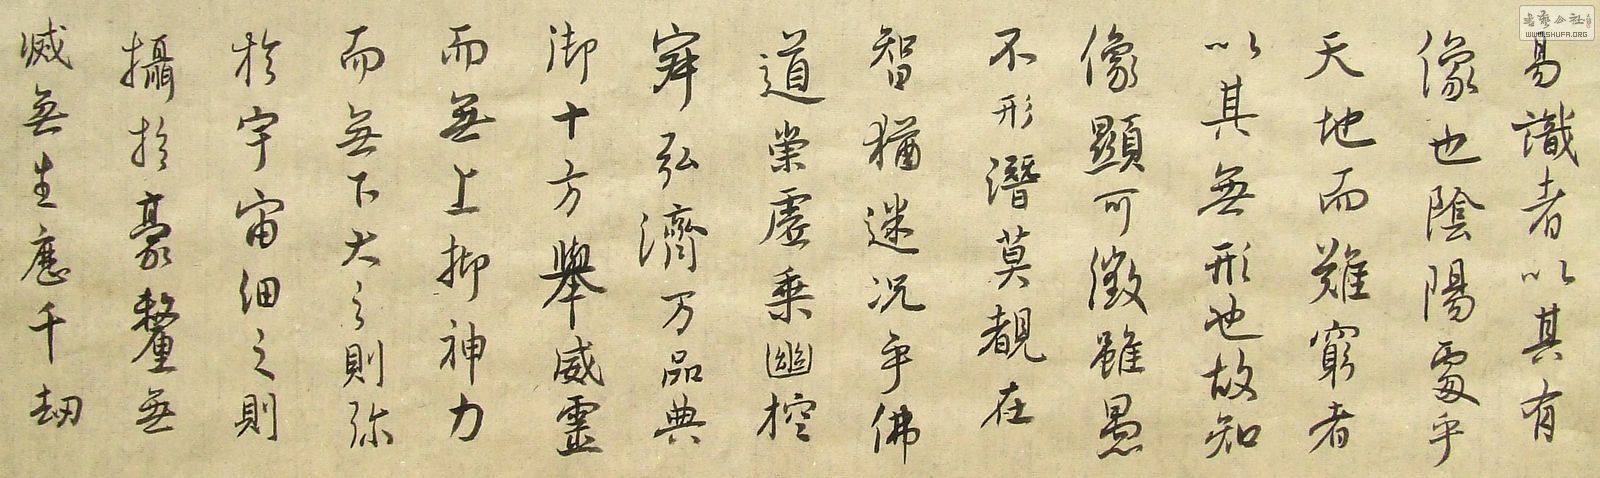 易識者以其有
像也陰陽處乎
天地而難窮者
以其無形也故知
像顯可徵雖愚
不形潛莫覩在
智猶迷况乎佛
道崇虛乘幽控
寂弘濟万品典
御十方舉威靈
而無上抑神力
而無下大之則弥
於宇宙細之則
攝於豪釐無
滅無生歷千劫
书艺公社
WWW.SHUFA.ORG